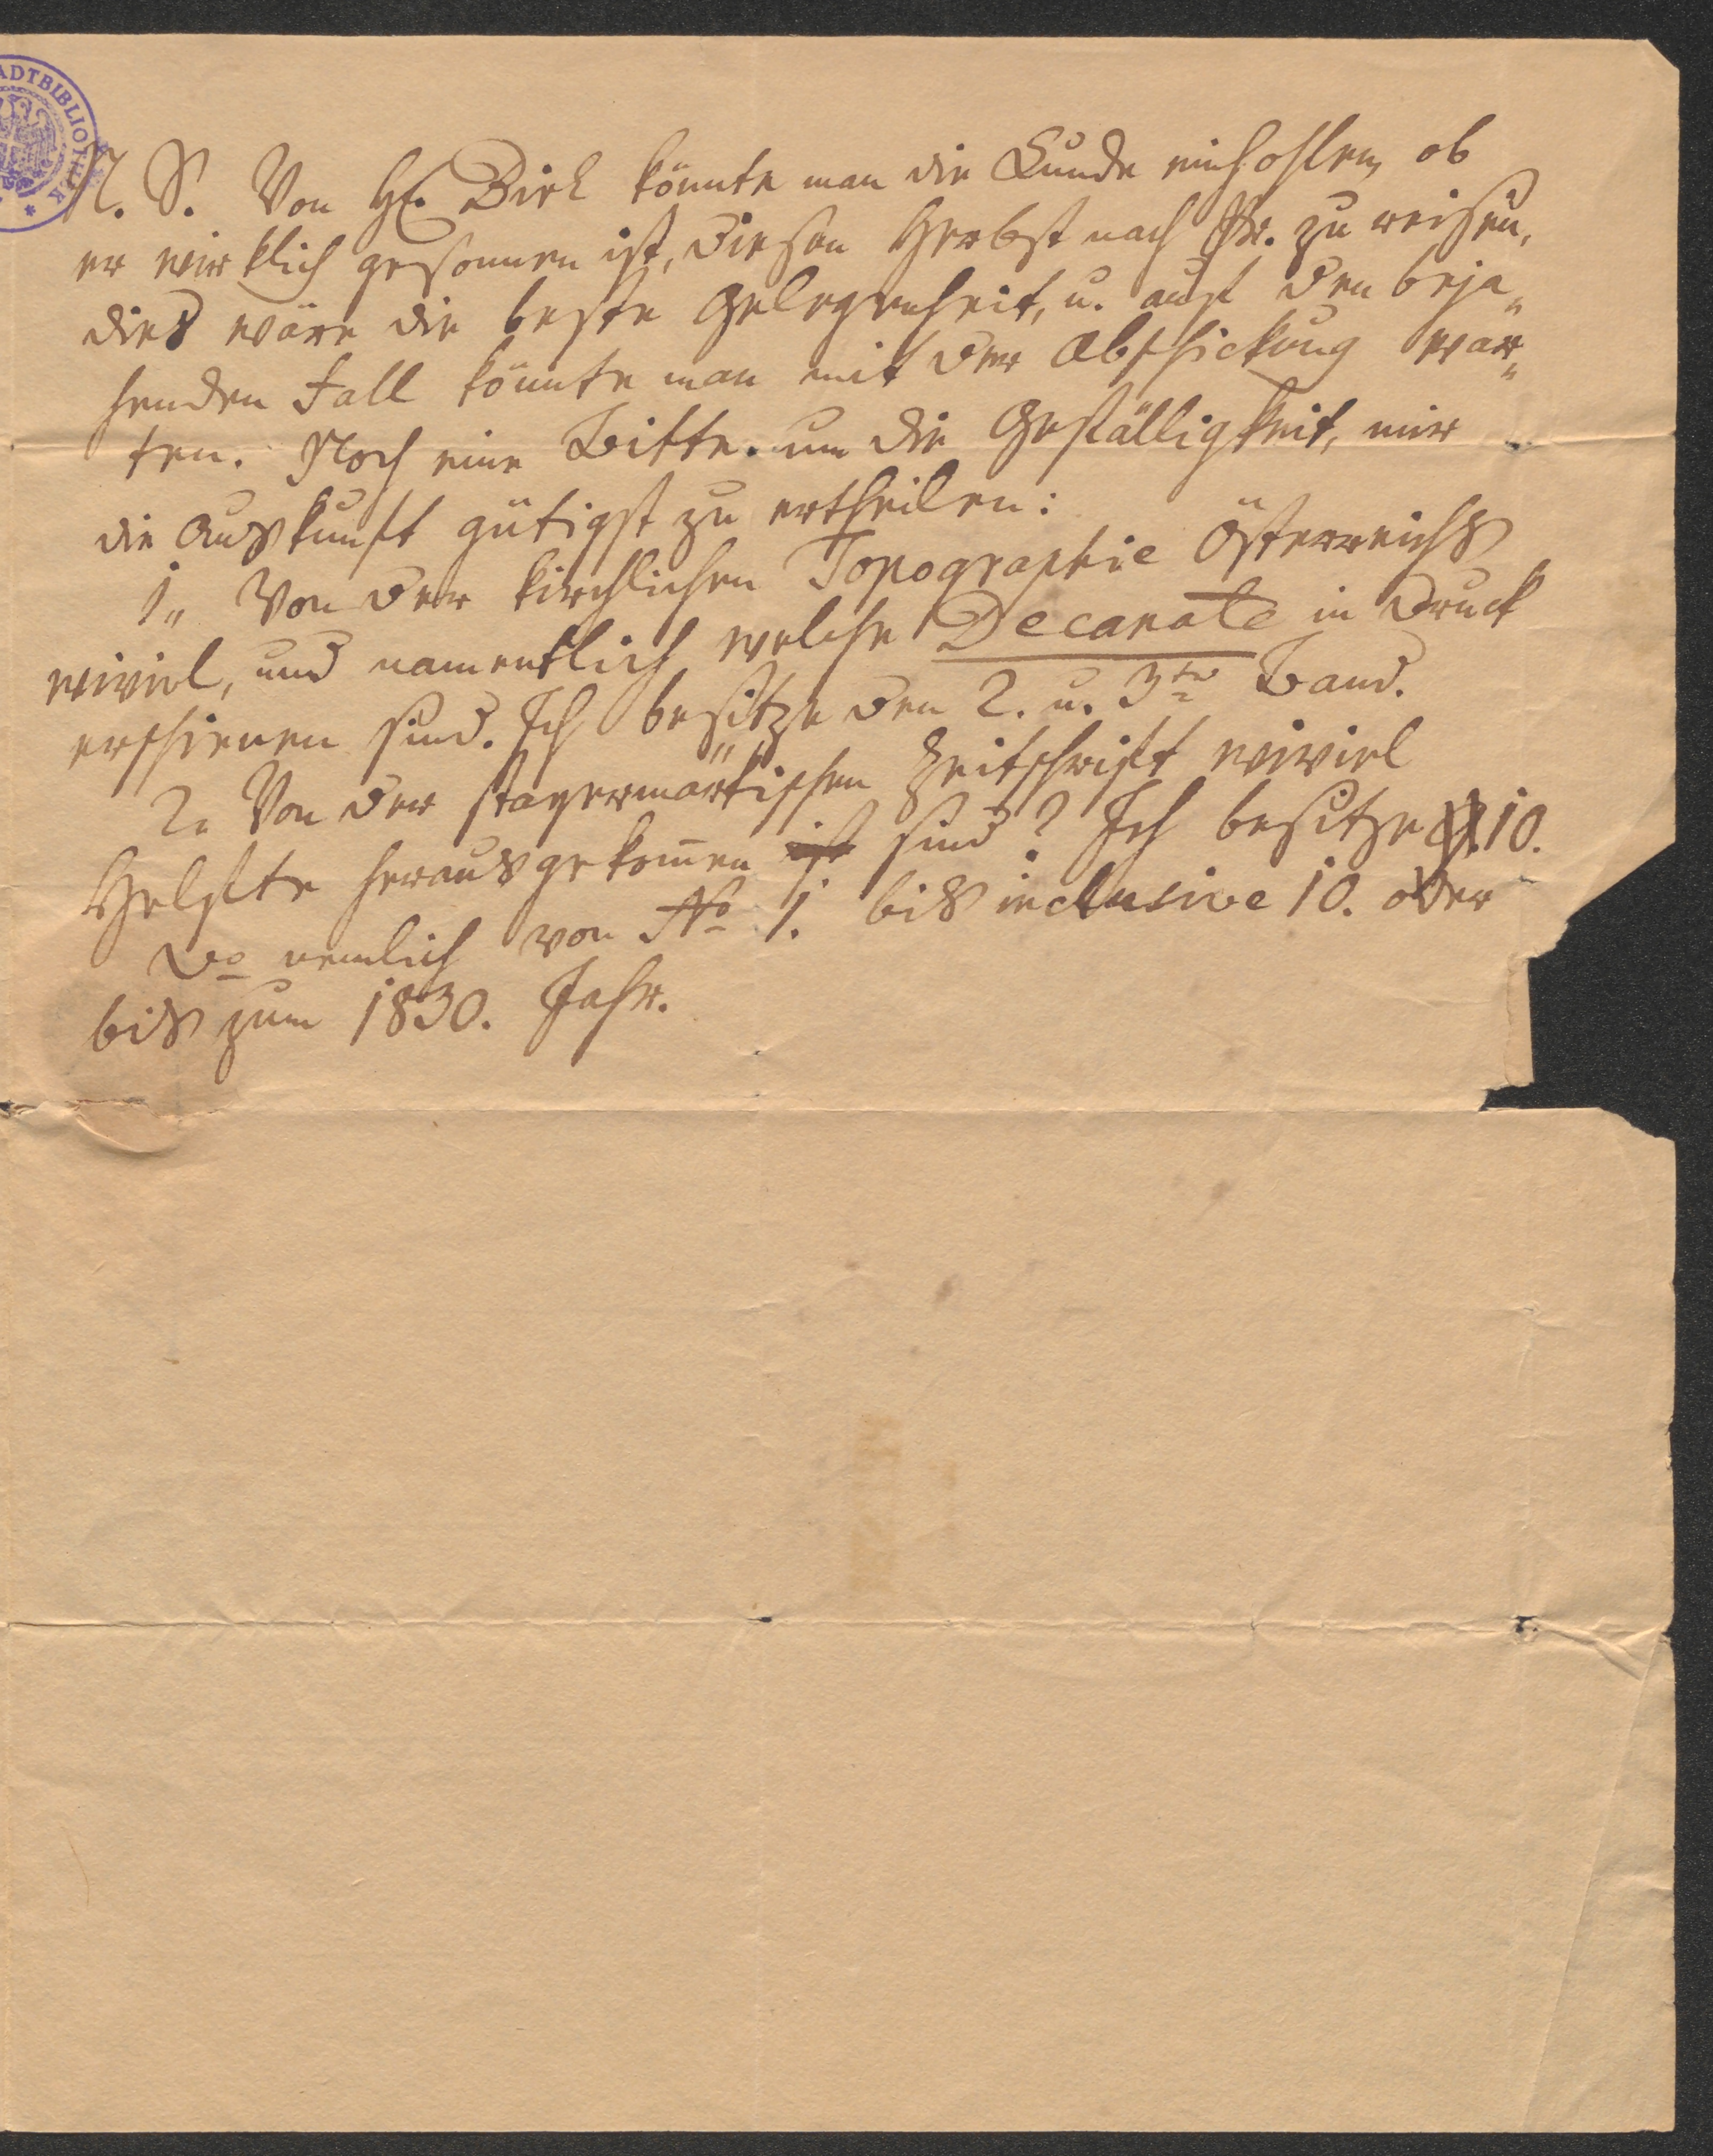 ADTBIBLIOTHEK
N. S. Von H. Birk könnte man die Kunde einhohlen, ob
er wirklich gesonnen ist, diesen Herbst nach Gr. zu reisen,
dies wäre die beste Gelegenheit, u. auf den beja„
henden Fall könnte man mit der Abschickung war„
ten. Noch eine Bitte. um die Gefälligkeit, mir
die Auskunft gütigst zu ertheilen:
1„ Von der kirchlichen Topographie Österreichs
wiviel, und namentlich welche Decanate in Druck
erschienen sind. Ich besitze den 2. u. 3tn Band.
2„ Von der steyermärkischen Zeitschrift wiviel
Helfte herausgekom̄en ist sind? Ich besitze 10.
do nemlich von No 1. bis inclusive 10. oder
bis zum 1830. Jahr.